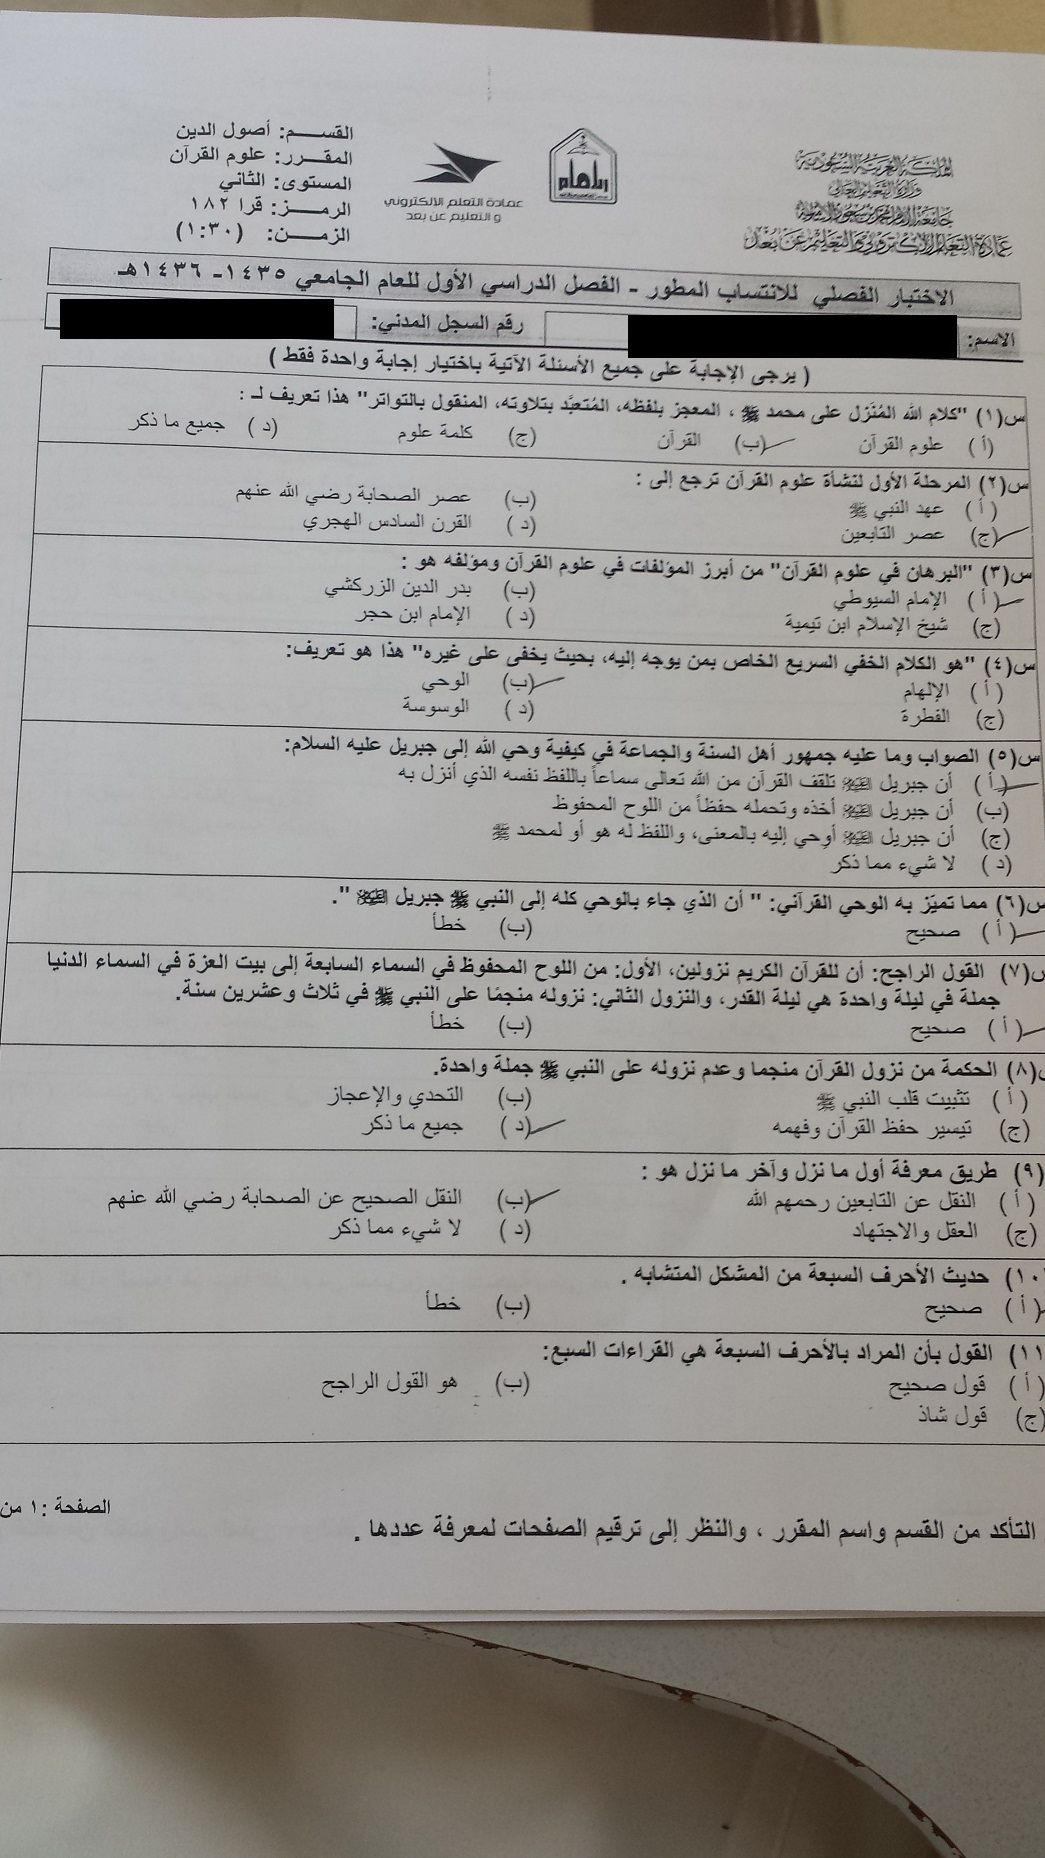 المملكة العربية السعودية
وزارة التعليم العالي
جامعة الإمام محمد بن سعود الإسلامية
عمادة التعلم الإلكتروني والتعليم عن بعد
عمادة التعلم الإلكتروني
و التعليم عن بعد
القسم: أصول الدين
المقرر: علوم القرآن
المستوى: الثاني
الرمز: قرا ١٨٢
الزمن: (١:٣٠)
الاختبار الفصلي للانتساب المطور - الفصل الدراسي الأول للعام الجامعي ١٤٣٥- ١٤٣٦هـ
الاسم: رقم السجل المدني:
( يرجى الإجابة على جميع الأسئلة الآتية باختيار إجابة واحدة فقط )
س(١) "كلام الله المُنَزل على محمد ﷺ ، المعجز بلفظه، المُتعبَّد بتلاوته، المنقول بالتواتر" هذا تعريف لـ :
(أ ) علوم القرآن (ب) القرآن (ج) كلمة علوم (د ) جميع ما ذكر
س(٢) المرحلة الأول لنشأة علوم القرآن ترجع إلى :
(أ ) عهد النبي ﷺ (ب) عصر الصحابة رضي الله عنهم
(ج) عصر التابعين (د ) القرن السادس الهجري
س(٣) "البرهان في علوم القرآن" من أبرز المؤلفات في علوم القرآن ومؤلفه هو :
(أ ) الإمام السيوطي (ب) بدر الدين الزركشي
(ج) شيخ الإسلام ابن تيمية (د ) الإمام ابن حجر
س(٤) "هو الكلام الخفي السريع الخاص بمن يوجه إليه، بحيث يخفى على غيره" هذا هو تعريف:
(أ ) الإلهام (ب) الوحي
(ج) الفطرة (د ) الوسوسة
س(٥) الصواب وما عليه جمهور أهل السنة والجماعة في كيفية وحي الله إلى جبريل عليه السلام:
(أ ) أن جبريل عليه السلام تلقف القرآن من الله تعالى سماعاً باللفظ نفسه الذي أنزل به
(ب) أن جبريل عليه السلام أخذه وتحمله حفظاً من اللوح المحفوظ
(ج) أن جبريل عليه السلام أوحي إليه بالمعنى، واللفظ له هو أو لمحمد ﷺ
(د ) لا شيء مما ذكر
س(٦) مما تميّز به الوحي القرآني: " أن الذي جاء بالوحي كله إلى النبي ﷺ جبريل عليه السلام ".
(أ ) صحيح (ب) خطأ
س(٧) القول الراجح: أن للقرآن الكريم نزولين، الأول: من اللوح المحفوظ في السماء السابعة إلى بيت العزة في السماء الدنيا
جملة في ليلة واحدة هي ليلة القدر، والنزول الثاني: نزوله منجمًا على النبي ﷺ في ثلاث وعشرين سنة.
(أ ) صحيح (ب) خطأ
(٨) الحكمة من نزول القرآن منجما وعدم نزوله على النبي ﷺ جملة واحدة.
(أ ) تثبيت قلب النبي ﷺ (ب) التحدي والإعجاز
(ج) تيسير حفظ القرآن وفهمه (د ) جميع ما ذكر
(٩) طريق معرفة أول ما نزل وآخر ما نزل هو :
(أ ) النقل عن التابعين رحمهم الله (ب) النقل الصحيح عن الصحابة رضي الله عنهم
(ج) العقل والاجتهاد (د ) لا شيء مما ذكر
١٠) حديث الأحرف السبعة من المشكل المتشابه .
(أ ) صحيح (ب) خطأ
١١) القول بأن المراد بالأحرف السبعة هي القراءات السبع:
(أ ) قول صحيح (ب) هو القول الراجح
(ج) قول شاذ
الصفحة :١ من
التأكد من القسم واسم المقرر ، والنظر إلى ترقيم الصفحات لمعرفة عددها .